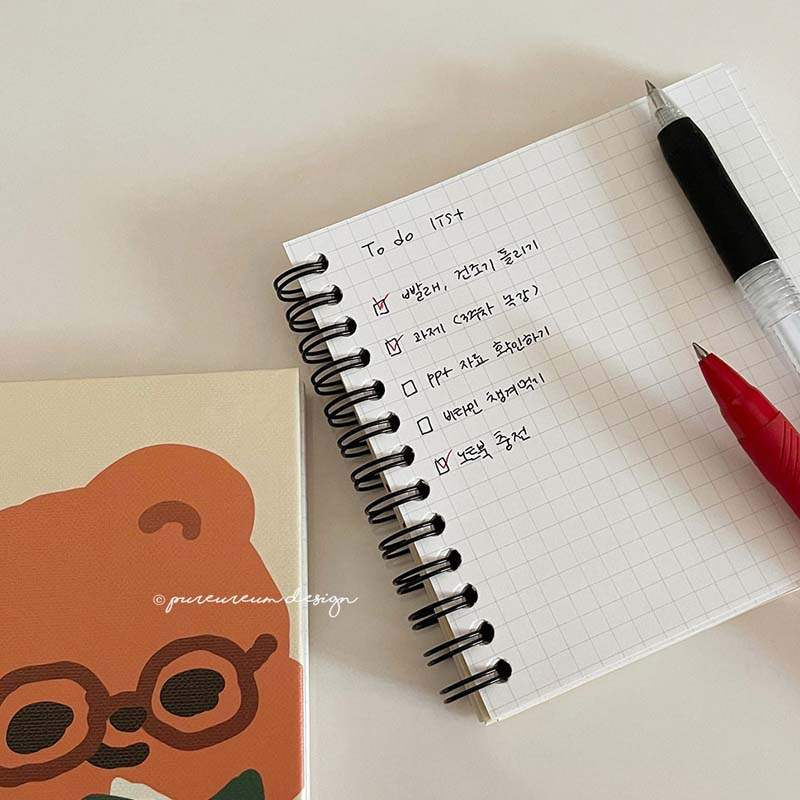 To do list
빨래, 건조기 돌리기
과제 (3주차 녹강)
ppt 자료 확인하기
비타민 챙겨먹기
노트북 충전
© pureureum design